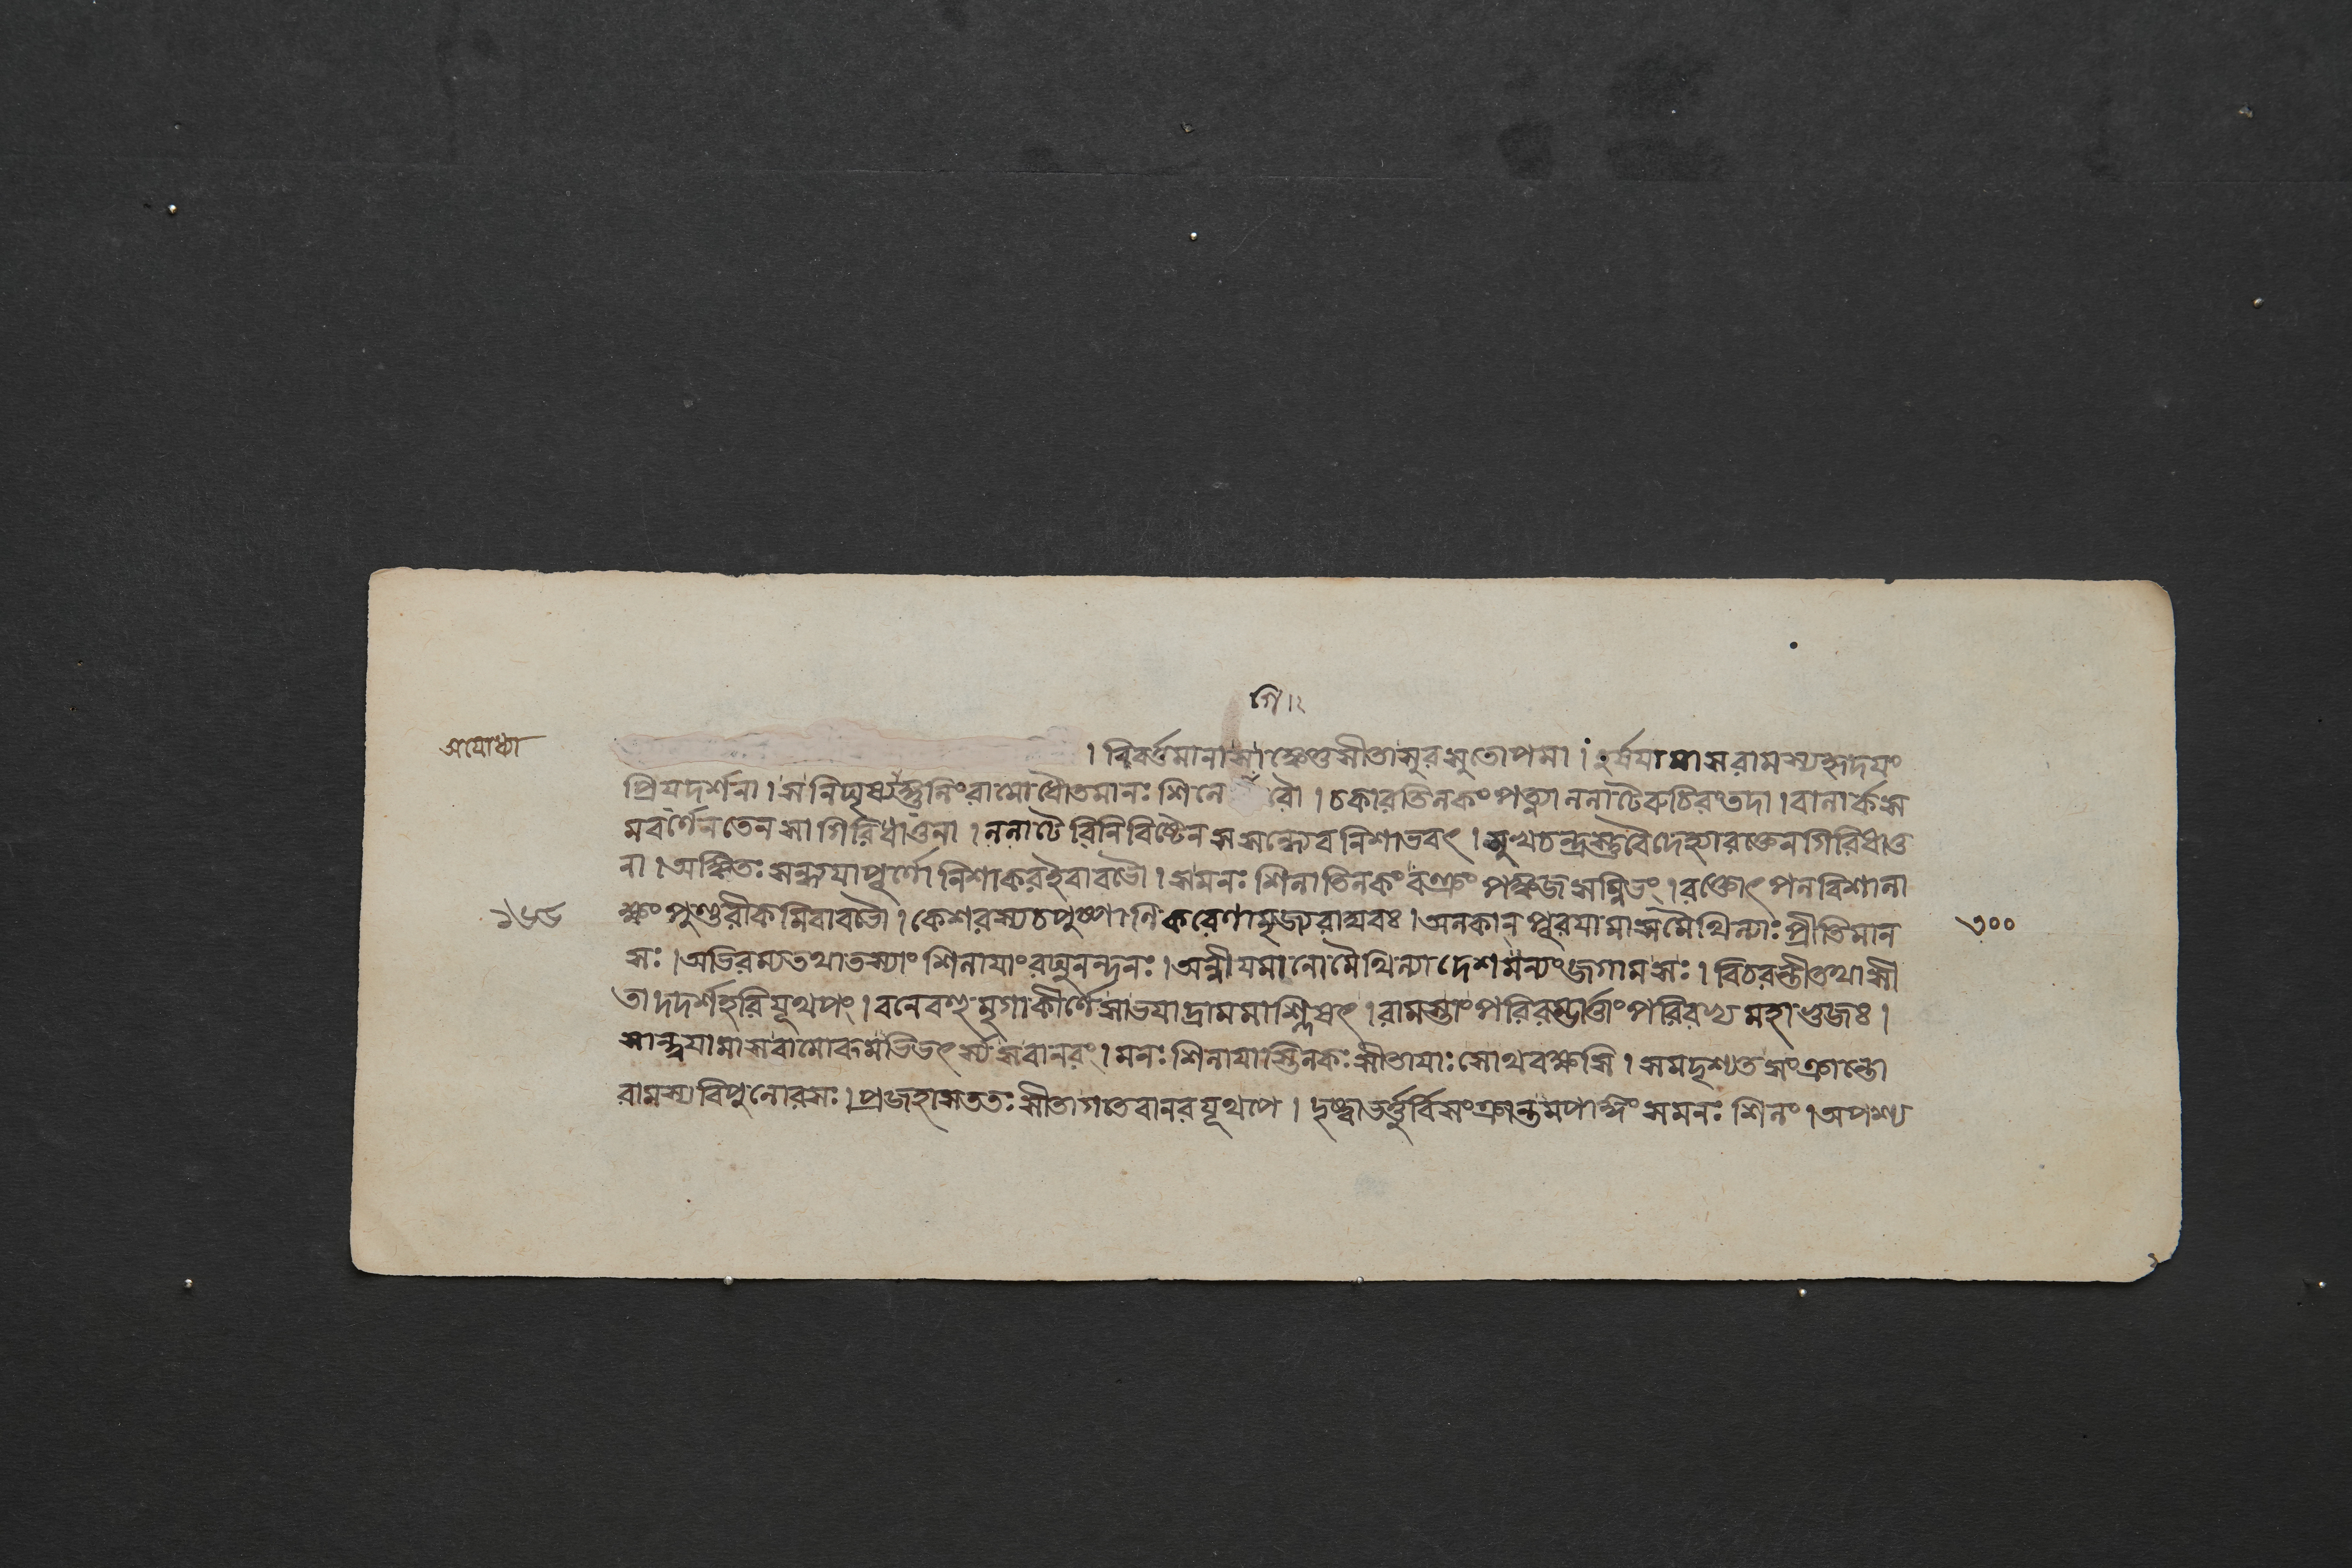 গি ৷ ২
অযোধ্যা
। বিবর্ত্তমানা সা ঙ্কেতু সীতা সুরসুতোপমা । হর্ষযামাস রামস্য হৃদযং
প্রিযদর্শনা । স নিঘৃষ্যাঙ্গুলিং রামো ধৌতে মানঃ শিলে রৌ । চকার তিলকং পত্ন্যা ললাটে রুচিরং তদা । বালার্কস
মবর্ণেন তেন সা গিরিধাতুনা । ললাটে বিনিবিষ্টেন সসন্ধ্যেব নিশাভবৎ । মুখচন্দ্রস্তু বৈদেহ্যা রক্তেন গিরিধাতু
না । অঙ্কিতঃ সন্ধ্যযা পূর্ণো নিশাকর ইবাবভৌ । স মনঃশিলা তিলকং বক্ত্রং পঙ্কজসন্নিভং । রক্তোৎপলবিশালা
১৬৬
ক্ষং পুণ্ডরীকমিবাবভৌ । কেশরস্য চ পুষ্পাণি করেণামৃজ্য রাঘবঃ । অলকান্ পূরযামাস মৈথিল্যাঃ প্রীতিমান
৩০০
সঃ । অভিরম্য তথা তস্যাং শিলাযাং রঘুনন্দনঃ । অন্বীযমানো মৈথিল্যা দেশমন্যং জগাম সঃ । বিচরন্তী তথা সী
তা দদর্শ হরিযূথপং । বনে বহুমৃগাকীর্ণে সা ভযাদ্রামমাশ্লিষৎ । রামস্তাং পরিরম্ভার্ত্তাং পরিরভ্য মহাভুজঃ ।
সান্ত্বযামাস বামোরুমভিভর্ৎস্য স বানরং । মনঃশিলাযাস্তিলকঃ সীতাযাঃ সোথ বক্ষসি । সমদৃশ্যত সংক্রান্তো
রামস্য বিপুলোরসঃ । প্রজহাস ততঃ সীতা গতে বানরযূথপে । দৃষ্ট্বা ভর্ত্তুর্বিসংক্রান্তমপাঙ্গং সমনঃশিলং । অপশ্য